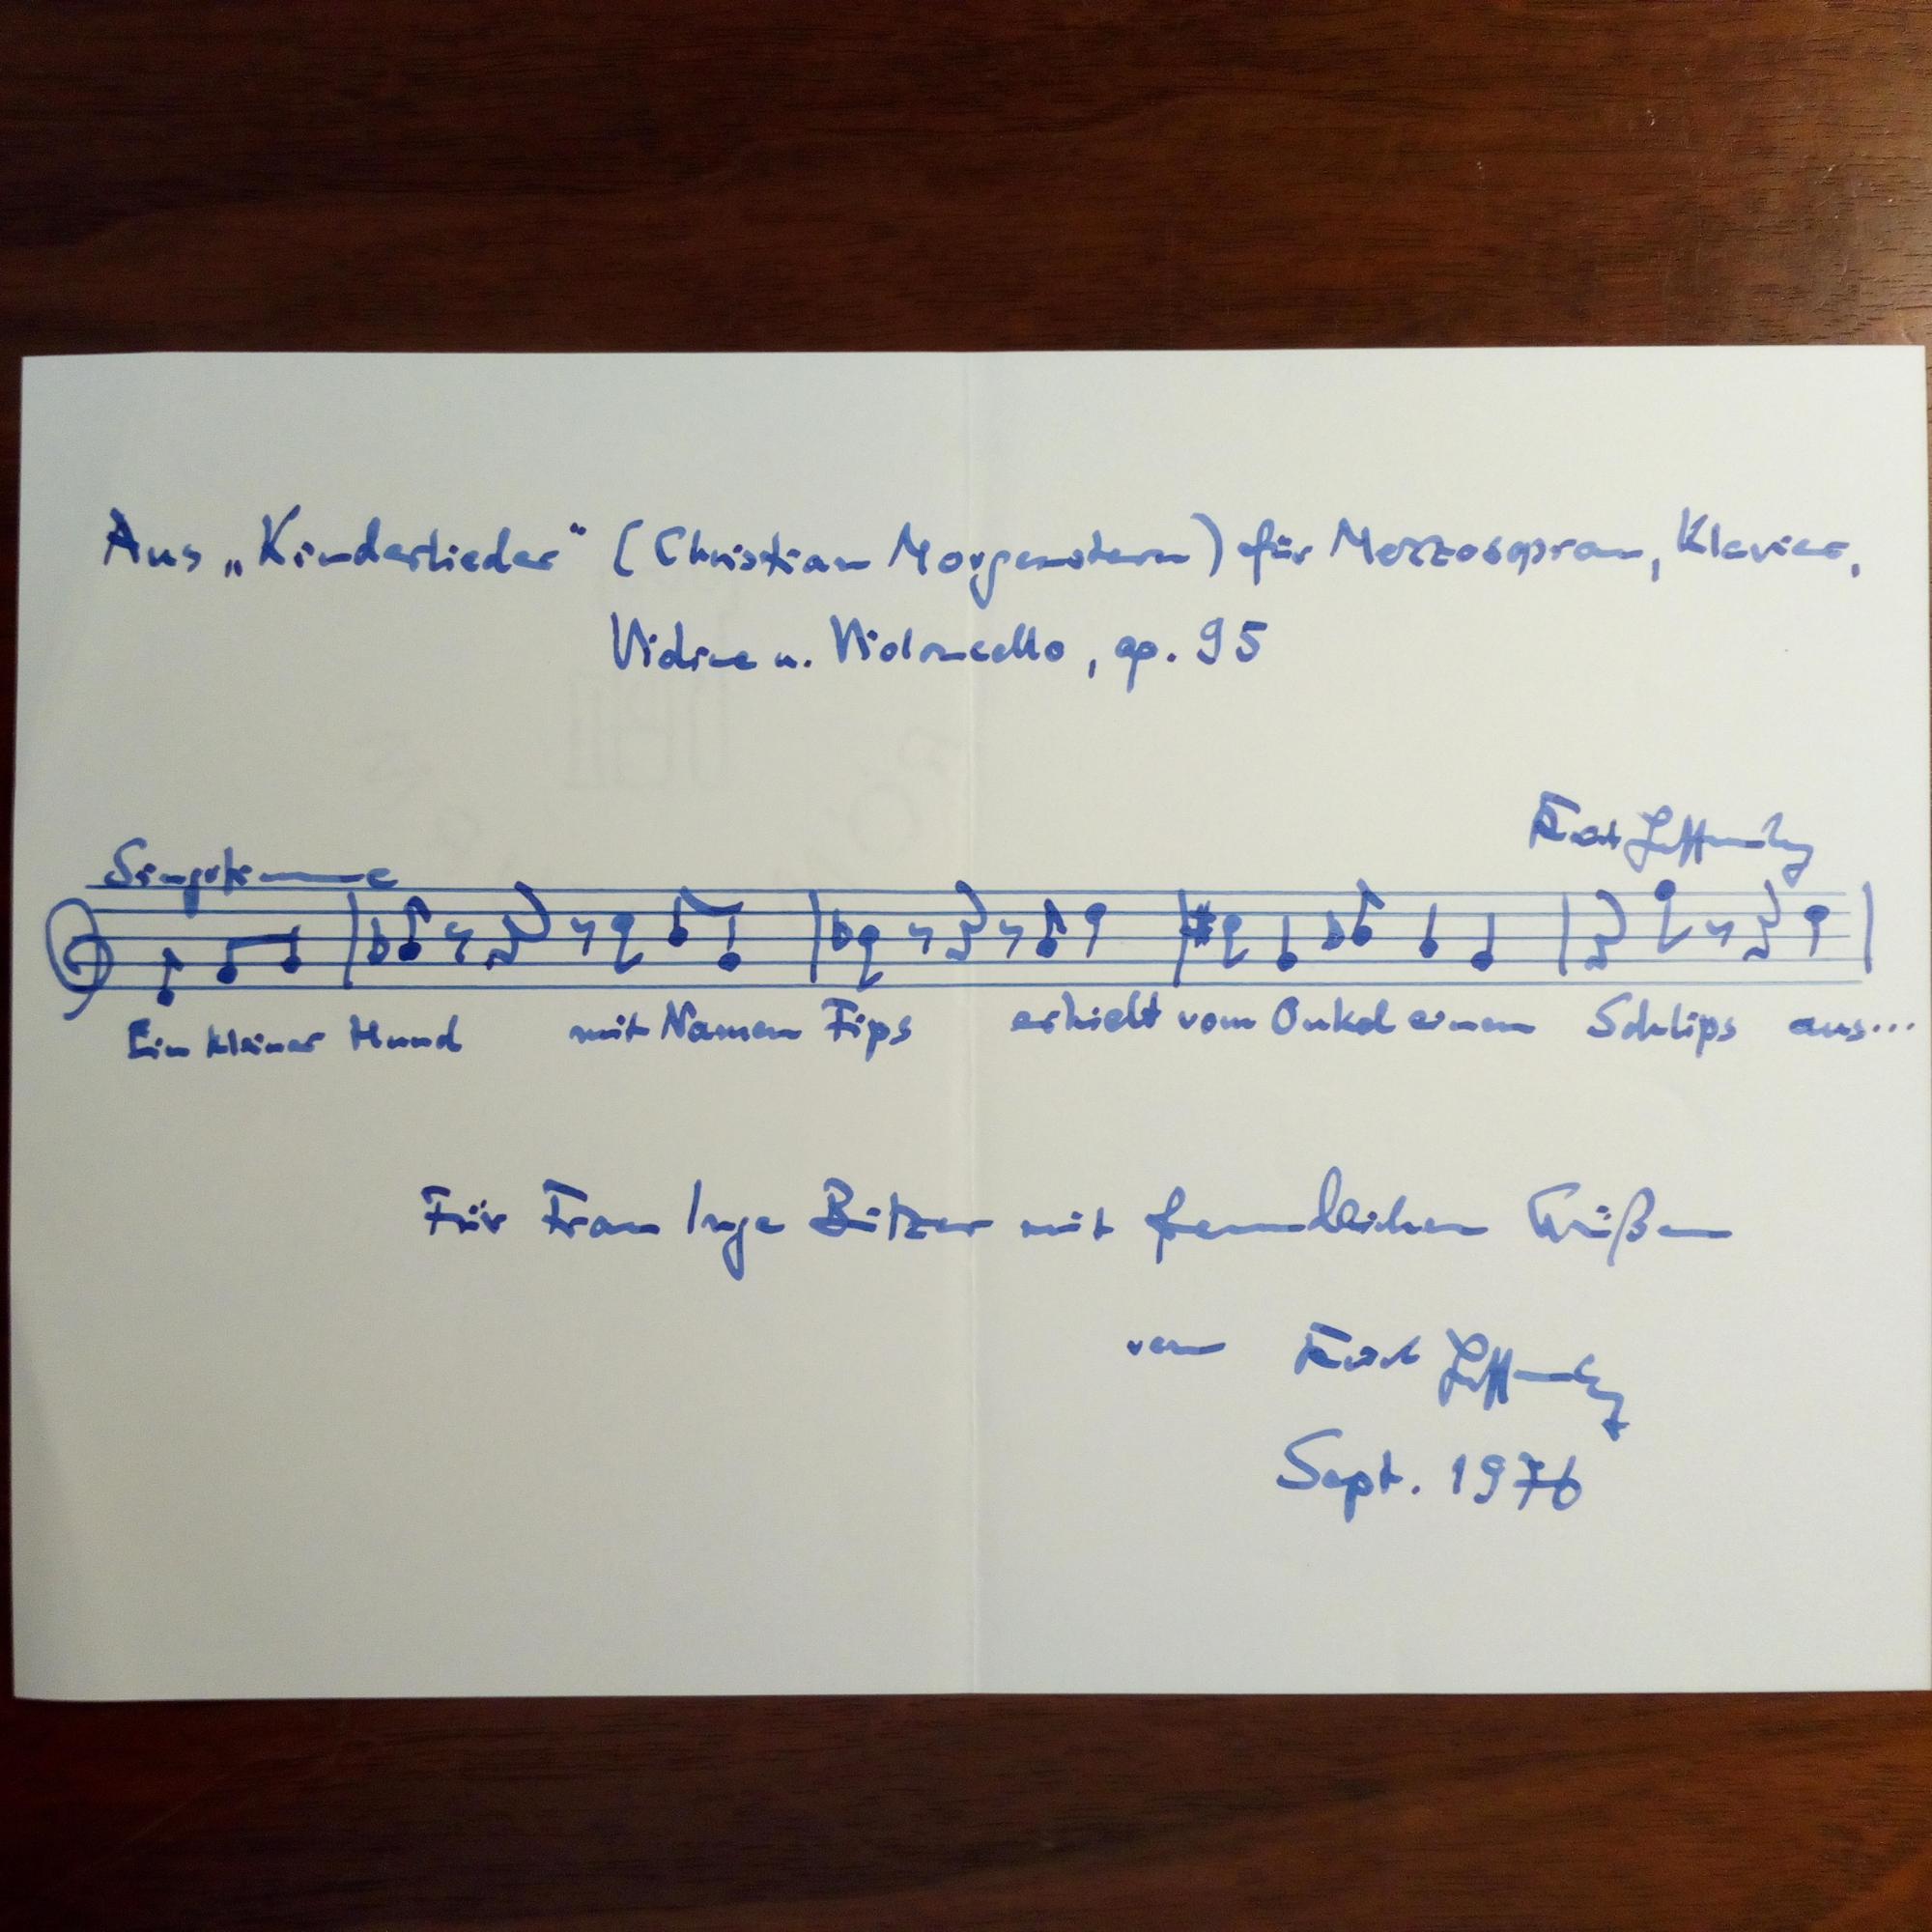 Aus „Kinderlieder“ (Christian Morgenstern) für Mezzosopran, Klavier,
Violine u. Violoncello, op. 95
Singstimme
Ein kleiner Hund mit Namen Fips erhielt vom Onkel einen Schlips aus...
Für Frau Inge Bitzer mit freundlichen Grüßen
von
Sept. 1976